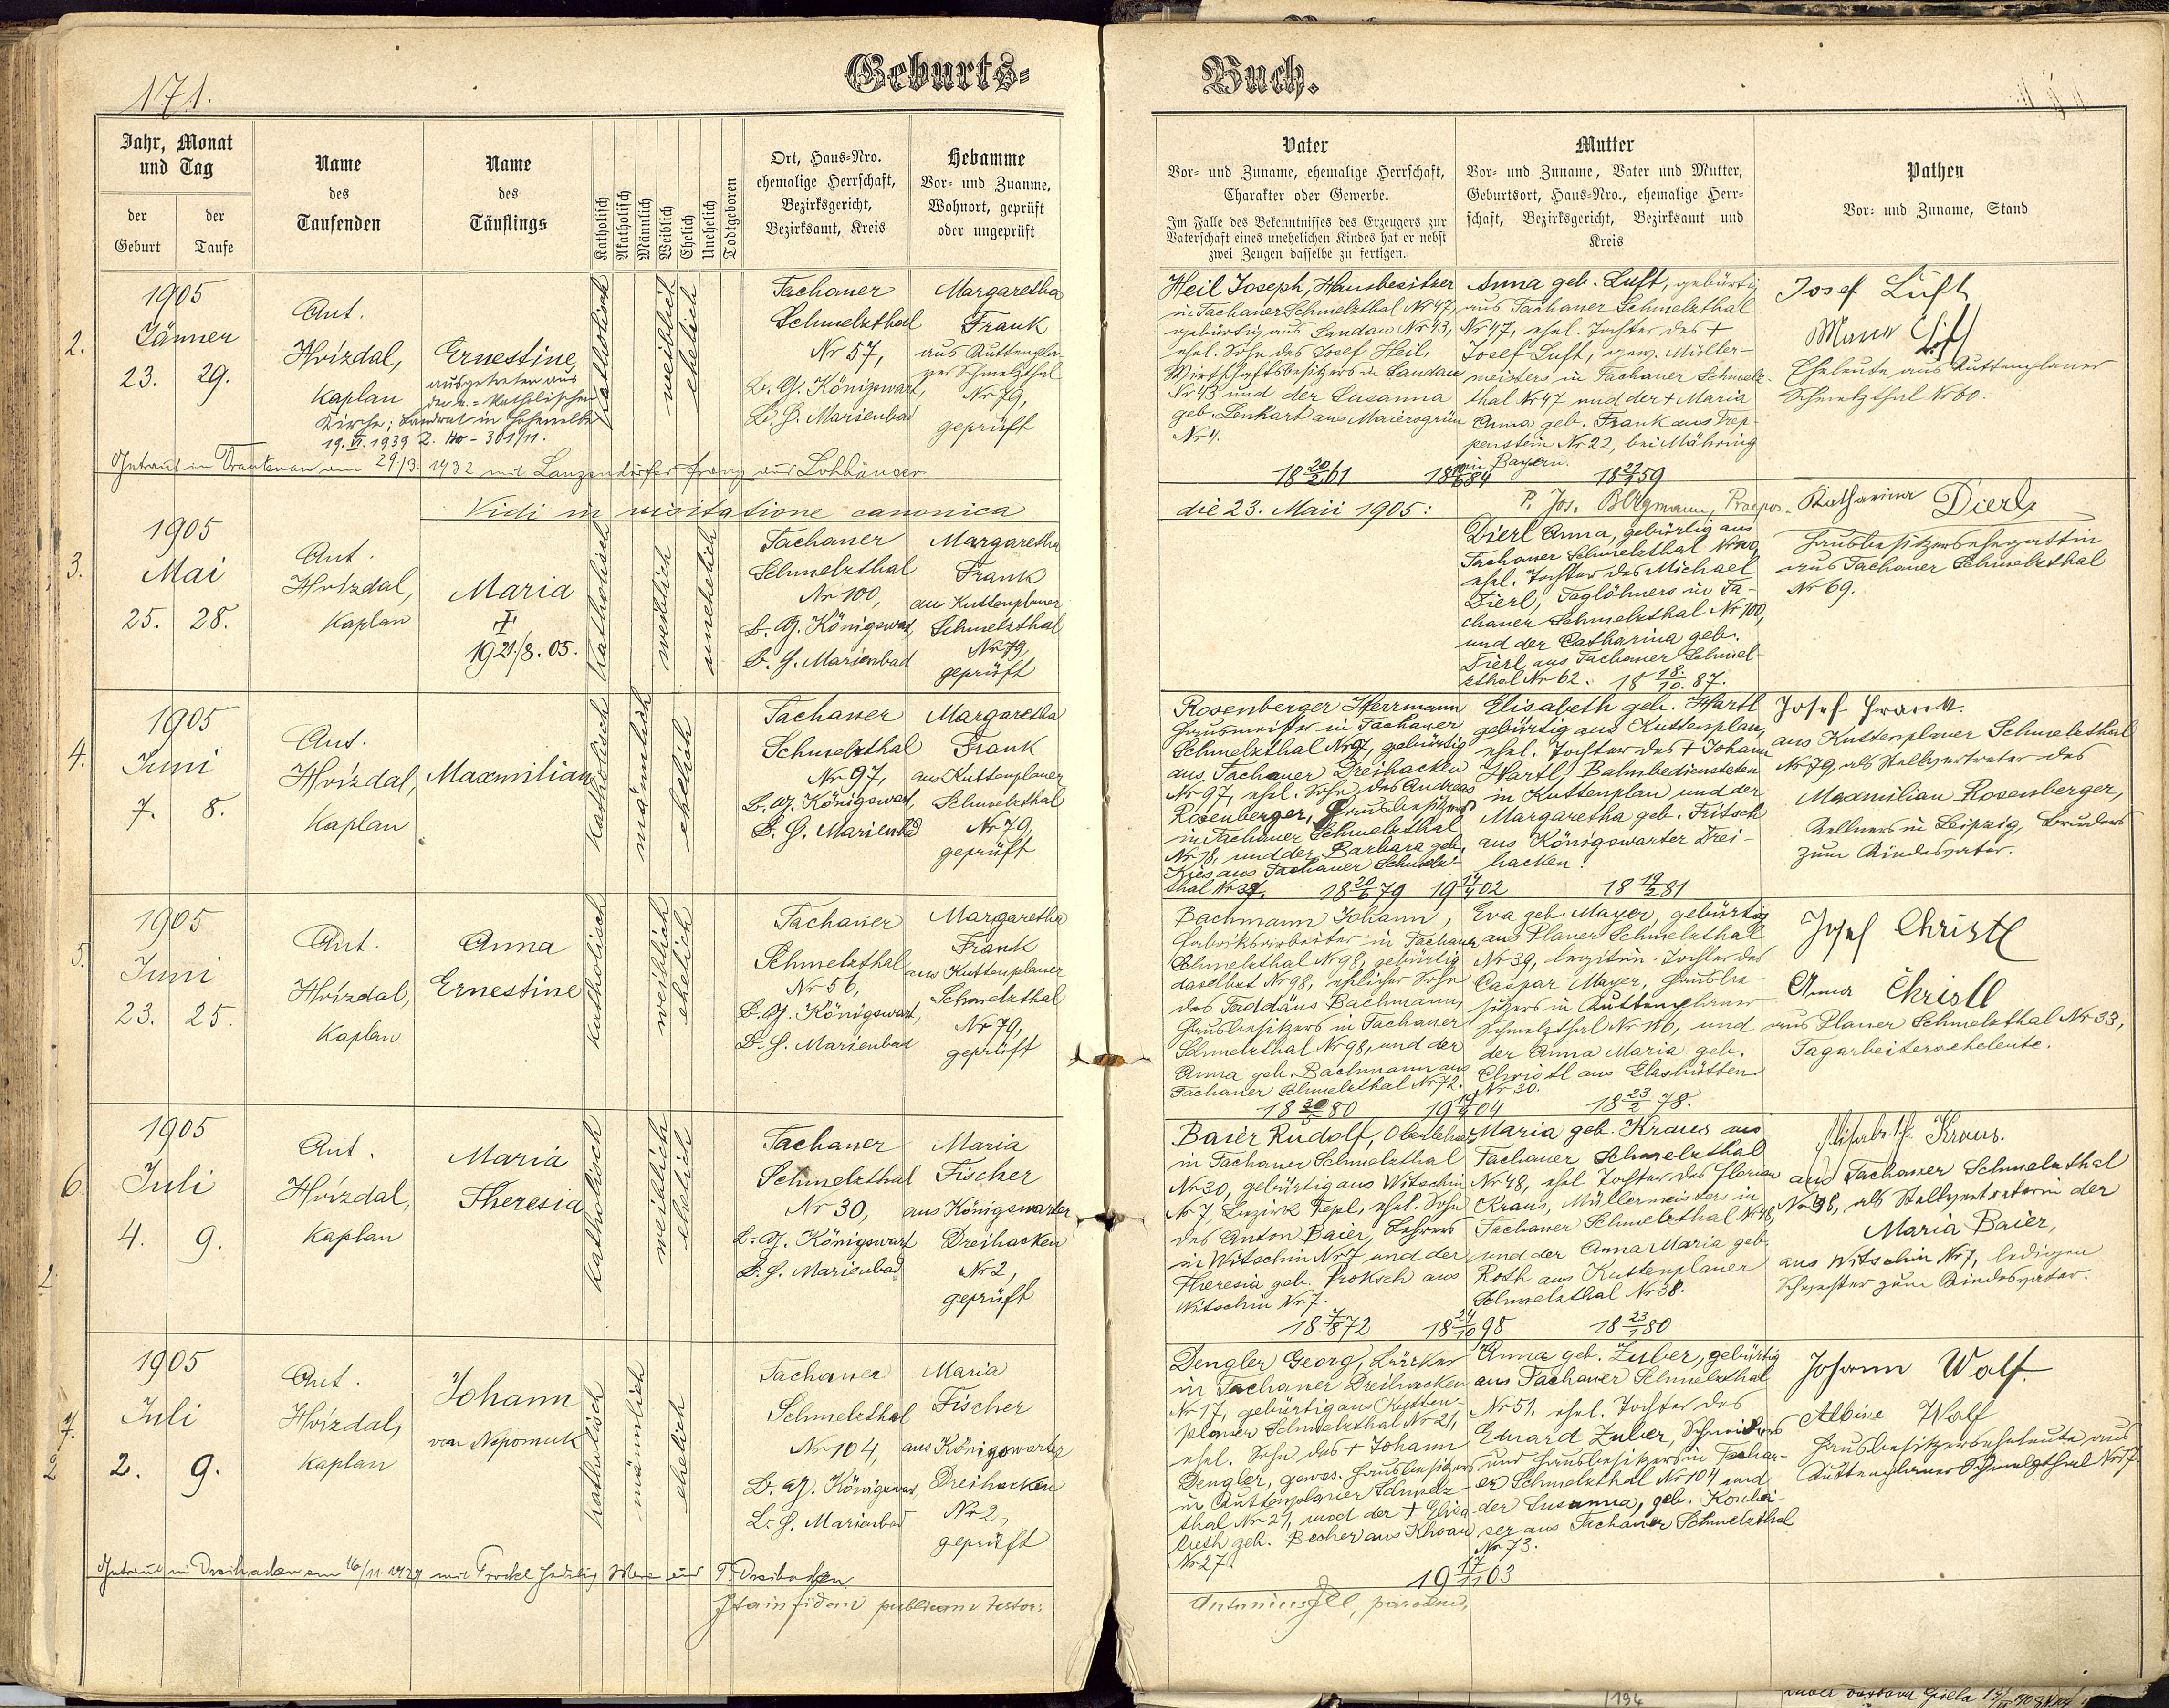 171.
Geburts-
Jahr, Monat
und Tag
der
Geburt
der
Taufe
Name
des
Taufenden
Name
des
Täuflings
Katholisch
Akatholisch
Männlich
Weiblich
Ehelich
Unehelich
Todtgeboren
Ort, Haus-Nro.
ehemalige Herrschaft,
Bezirksgericht,
Bezirksamt, Kreis
Hebamme
Vor- und Zuname,
Wohnort, geprüft
oder ungeprüft
2.
1905
Jänner
23. 29.
Ant.
Hvízdal,
Kaplan
Ernestine
ausgetreten aus
der r.-katholischen
Kirche; Landrat in Hohenelbe
19. VI. 1939 Z. 110-301/11.
katholisch
weiblich
ehelich
Tachauer
Schmelzthal
Nr 57,
B. G. Königswart,
B. H. Marienbad
Margaretha
Frank
aus Kuttenpla-
ner Schmelzthal
Nr 79,
geprüft
Getraut in Trautenau am 29/3. 1932 mit Lanzendörfer Franz aus
Vidi in visitatione canonica
3.
1905
Mai
25. 28.
Ant.
Hvízdal,
Kaplan
Maria
1921/8.05.
katholisch
weiblich
unehelich
Tachauer
Schmelzthal
Nr 100,
B. G. Königswart,
B. H. Marienbad
Margaretha
Frank
aus Kuttenplaner
Schmelzthal
Nr 79,
geprüft
4.
1905
Juni
7. 8.
Ant.
Hvízdal,
Kaplan
Maxmilian
katholisch
männlich
ehelich
Tachauer
Schmelzthal
Nr 97,
B. G. Königswart,
B. H. Marienbad
Margaretha
Frank
aus Kuttenplaner
Schmelzthal
Nr 79,
geprüft
5.
1905
Juni
23. 25.
Ant.
Hvízdal,
Kaplan
Anna
Ernestine
katholisch
weiblich
ehelich
Tachauer
Schmelzthal
Nr 56,
B. G. Königswart,
B. H. Marienbad
Margaretha
Frank
aus Kuttenplaner
Schmelzthal
Nr 79,
geprüft
6
1905
Juli
4. 9.
Ant.
Hvízdal,
Kaplan
Maria
Theresia
katholisch
weiblich
ehelich
Tachauer
Schmelzthal
Nr 30,
B. G. Königswart
B. H. Marienbad
Maria
Fischer
aus Königswarter
Dreihacken
Nr 2,
geprüft
2
7.
2
1905
Juli
2. 9.
Ant.
Hvízdal,
Kaplan
Johann
von Nepomuk
katholisch
männlich
ehelich
Tachauer
Schmelzthal
Nr 104,
B. G. Königswart
B. H. Marienbad
Maria
Fischer
aus Königswarter
Dreihacken
Nr 2,
geprüft
Getraut in Dreihacken am 16/11. 1929 mit aus T. Dreihacken
Ita in fidem publicam testor:
Buch.
Vater
Vor- und Zuname, ehemalige Herrschaft,
Charakter oder Gewerbe.
Im Falle des Bekenntnisses des Erzeugers zur
Vaterschaft eines unehelichen Kindes hat er nebst
zwei Zeugen dasselbe zu fertigen.
Mutter
Vor- und Zuname, Vater und Mutter,
Geburtsort, Haus-Nro., ehemalige Herr-
schaft, Bezirksgericht, Bezirksamt und
Kreis
Pathen
Vor- und Zuname, Stand
Heil Joseph, Hausbesitzer
in Tachauer Schmelzthal Nr 47,
gebürtig aus Sandau Nr 43,
ehel. Sohn des Josef Heil,
Wirthschaftsbesitzers in Sandau
Nr 43 und der Susanna
geb. Lenhart aus Maiersgrün
Nr 4.
18 20/2 61
Anna geb. Luft, gebürtig
aus Tachauer Schmelzthal
Nr 47, ehel. Tochter des †
Josef Luft, gew. Müller-
meisters in Tachauer Schmelz-
thal Nr 47 und der † Maria
Anna geb. Frank aus Prep-
penstein Nr 22, bei Mähring
in Bayern.
Josef Luft
Eheleute aus Kuttenplaner
Schmelzthal Nr 60.
die 23. Maii 1905:
P. Jos. Bergmann, Praepos.
Dierl Anna, gebürtig aus
Tachauer Schmelzthal Nr 100,
ehel. Tochter des Michael
Dierl, Taglöhners in Ta-
chauer Schmelzthal Nr 100,
und der Catharina geb.
Dierl aus Tachauer Schmel-
zthal Nr 62. 18 18./10. 87.
Katharina Dierl
Hausbesitzersehegattin
aus Tachauer Schmelzthal
Nr 69.
Rosenberger Herrmann
Hausmeister in Tachauer
Schmelzthal Nr 97, gebürtig
aus Tachauer Dreihacken
Nr 97, ehel. Sohn des Andreas
Rosenberger, Hausbesitzers
in Tachauer Schmelzthal
Nr 78, und der Barbara geb.
Kies aus Tachauer Schmelz-
thal Nr 37. 18 20/6 79 19 14/4 02
Elisabeth geb. Hartl
gebürtig aus Kuttenplan,
ehel. Tochter des † Johann
Hartl, Bahnbediensteten
in Kuttenplan und der
Margaretha geb. Fritsch
aus Königswarter Drei-
hacken.
18 19/2 81
Josef Frank.
aus Kuttenplaner Schmelzthal
Nr 79, als Stellvertreter des
Maxmilian Rosenberger,
Kellners in Leipzig, Bruders
zum Kindesvater.
Bachmann Johann,
Fabriksarbeiter in Tachauer
Schmelzthal Nr 98, gebürtig
daselbst Nr 98, ehelicher Sohn
des Taddäus Bachmann,
Hausbesitzers in Tachauer
Schmelzthal Nr 98, und der
Anna geb. Bachmann aus
Tachauer Schmelzthal Nr 72.
Eva geb. Mayer, gebürtig
aus Planer Schmelzthal
Nr 39, legitim. Tochter des
Caspar Mayer, Hausbe-
sitzers in Kuttenplaner
Schmelzthal Nr 110, und
der Anna Maria geb.
Christl aus Glashütten
Nr 30.
18 23/2 78.
Josef Christl
Anna Christl
aus Planer Schmelzthal Nr 33,
Tagarbeiterseheleute.
Baier Rudolf, Oberlehrer
in Tachauer Schmelzthal
Nr 30, gebürtig aus Witschin
Nr 7, Bezirk Tepl, ehel. Sohn
des Anton Baier, Lehrers
in Witschin Nr 7 und der
Theresia geb. Proksch aus
Witschin Nr 7.
18 7/8 72 18 24/10 98
Maria geb. Kraus aus
Tachauer Schmelzthal
Nr 48, ehel. Tochter des Florian
Kraus, Müllermeisters in
Tachauer Schmelzthal Nr 48,
und der Anna Maria geb.
Roth aus Kuttenplaner
Schmelzthal Nr 38.
18 23/1 80
Elisabeth Kraus.
aus Tachauer Schmelzthal
Nr 48, als Stellvertreterin der
Maria Baier,
aus Witschin Nr 7, ledigen
Schwester zum Kindesvater.
Dengler Georg,
in Tachauer Dreihacken
Nr 17, gebürtig aus Kutten-
planer Schmelzthal Nr 21,
ehel. Sohn des † Johann
Dengler, gewes. Hausbesitzers
in Kuttenplaner Schmelz-
thal Nr 21, und der † Elisa-
beth geb. Becher aus Khoau
Nr 27.
19 17/11 03
Anna geb. Zuber, gebürtig
aus Tachauer Schmelzthal
Nr 51, ehel. Tochter des
Eduard Zuber, Schneiders
und Hausbesitzers in Tachau-
er Schmelzthal Nr 104 und
der Susanna, geb.
aus Tachauer Schmelzthal
Nr 73.
Johann Wolf.
Albine Wolf
Hausbesitzerseheleute aus
Kuttenplaner Schmelzthal Nr 17
Antonius Illl, parochus,
194